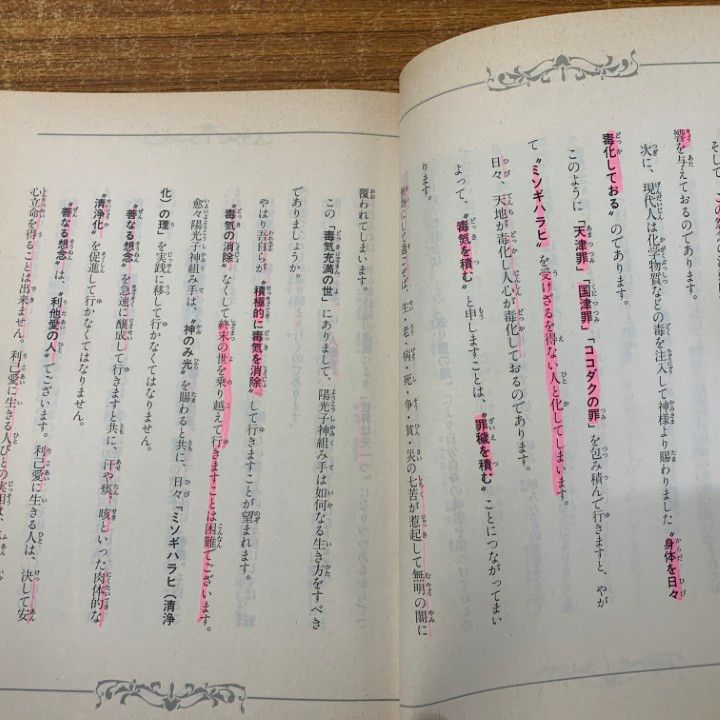 そして、
響を与えておるのであります。
次に、現代人は化学物質などの毒を注入して神様より賜わりました〝身体を日々
毒化しておる〟のであります。
このように「天津罪」「国津罪」「ココダクの罪」を包み積んで行きますと、やが
て〝ミソギハラヒ〟を受けざるを得ない人と化してしまいます。
日々、天地が毒化し人心が毒化しておるのであります。
よって、〝毒気を積む〟と申しますことは、〝罪穢を積む〟ことにつながってまい
ります。
生・老・病・死・争・貧・災の七苦が惹起して無明の闇に
覆われてしまいます。
この「毒気充満の世」にありまして、陽光子神組み手は如何なる生き方をすべき
でありましょうか。
やはり吾自らが〝積極的に毒気を消除〟して行きますことが望まれます。
〝毒気の消除〟なくして終末の世を乗り越えて行きますことは困難でございます。
愈々陽光子神組み手は、〝神のみ光〟を賜わると共に、日々「ミソギハラヒ（清浄
化）の理」を実践に移して行かなくてはなりません。
〝善なる想念〟を急速に醸成して行きますと共に、汗や痰、咳といった肉体的な
〝清浄化〟を促進して行かなくてはなりません。
〝善なる想念〟は、〝利他愛の人〟でございます。利己愛に生きる人は、決して安
心立命を得ることは出来ません。利己愛に生きる人びとの実相は、